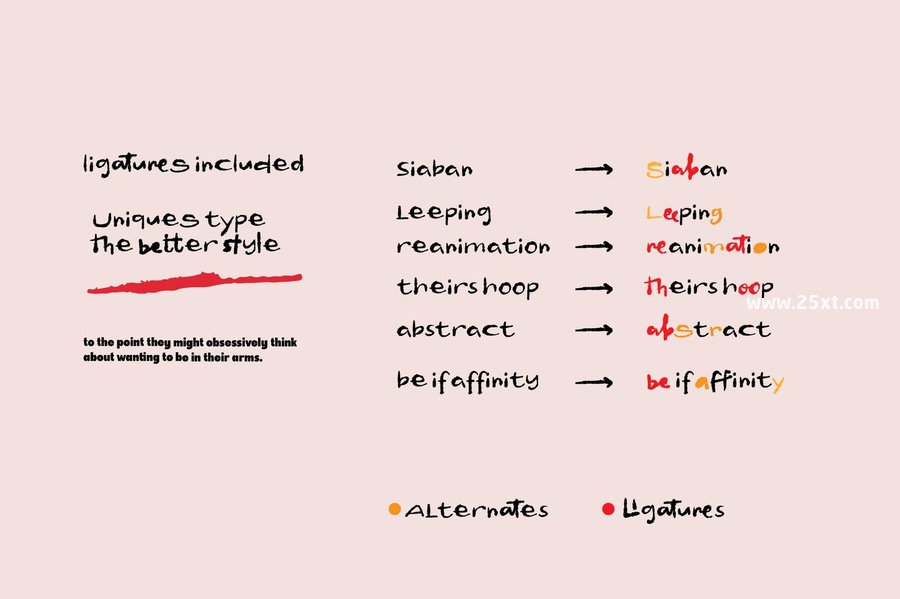 ligatures included
Uniques type
the better style
to the point they might obsessively think
about wanting to be in their arms.
Siaban → Siaban
Leeping → Leeping
reanimation → reanimation
theirshoop → theirshoop
www.25xt.com
abstract → abstract
be if affinity → be if affinity
ALternates
Ligatures